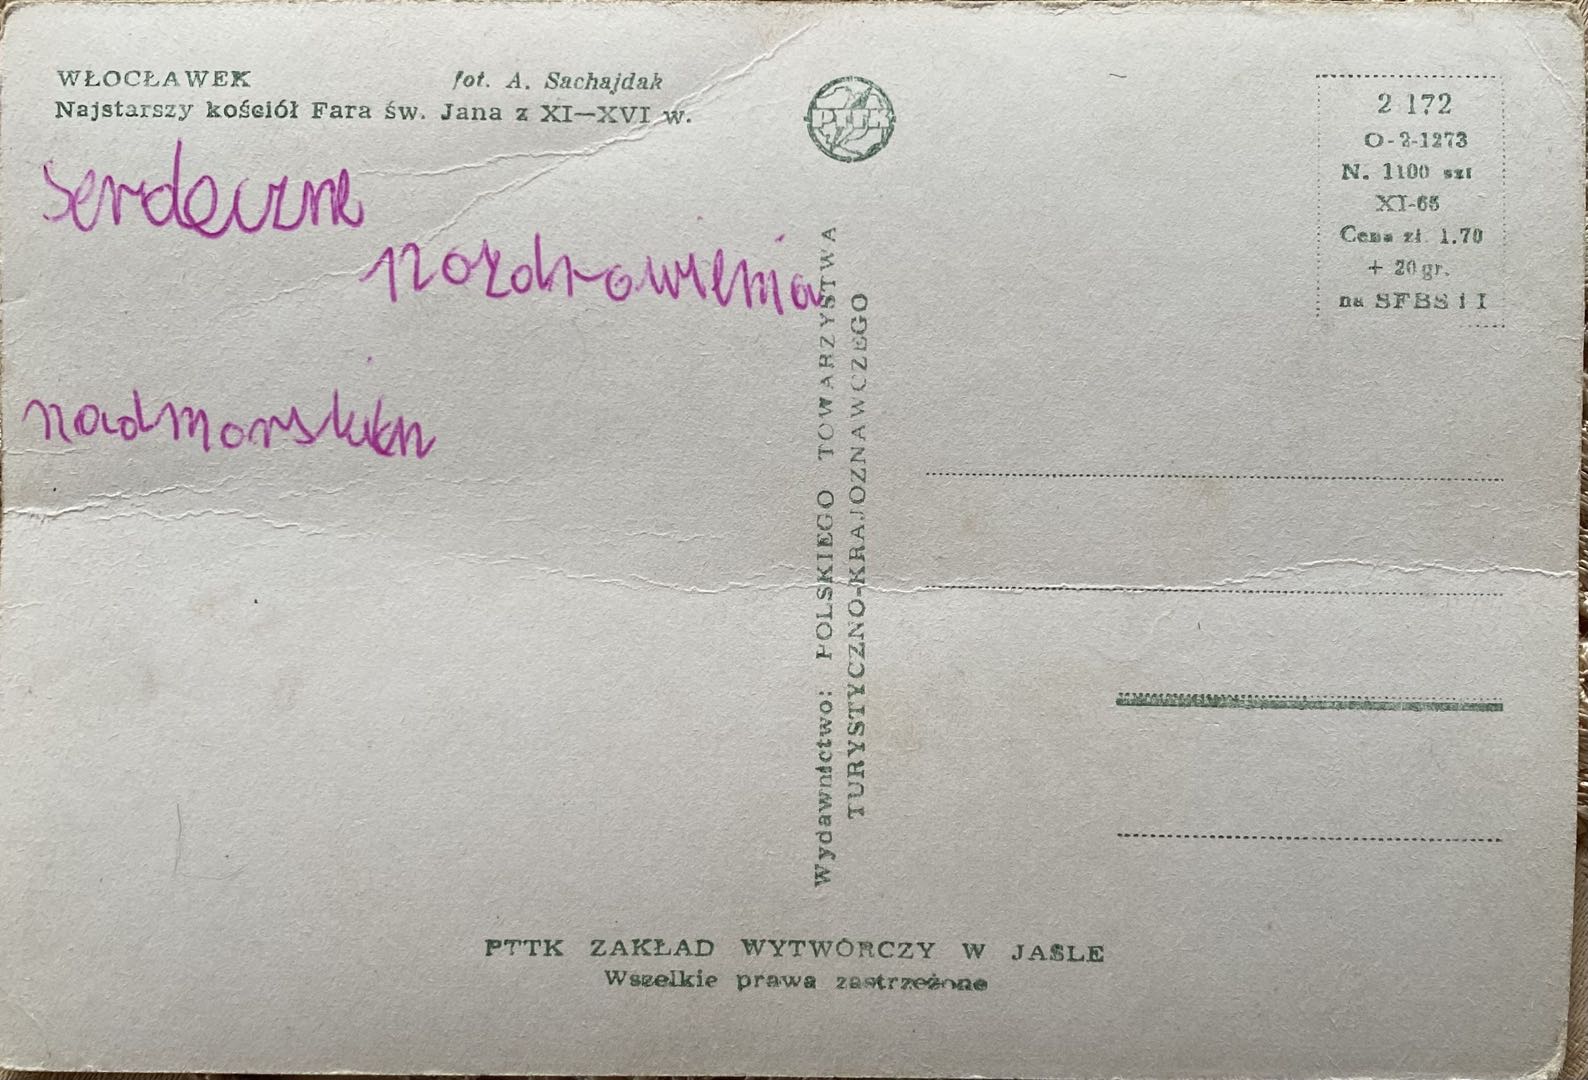 WŁOCŁAWEK fot. A. Sachajdak
Najstarszy kościół Fara św. Jana z XI—XVI w.
serdeczne
pozdrowienia
PTTK
2 172
O-2-1273
N. 1100 szt
XI-65
Cena zł 1.70
+ 20 gr.
na SFBS i I
Wydawnictwo: POLSKIEGO TOWARZYSTWA
TURYSTYCZNO-KRAJOZNAWCZEGO
PTTK ZAKŁAD WYTWÓRCZY W JAŚLE
Wszelkie prawa zastrzeżone